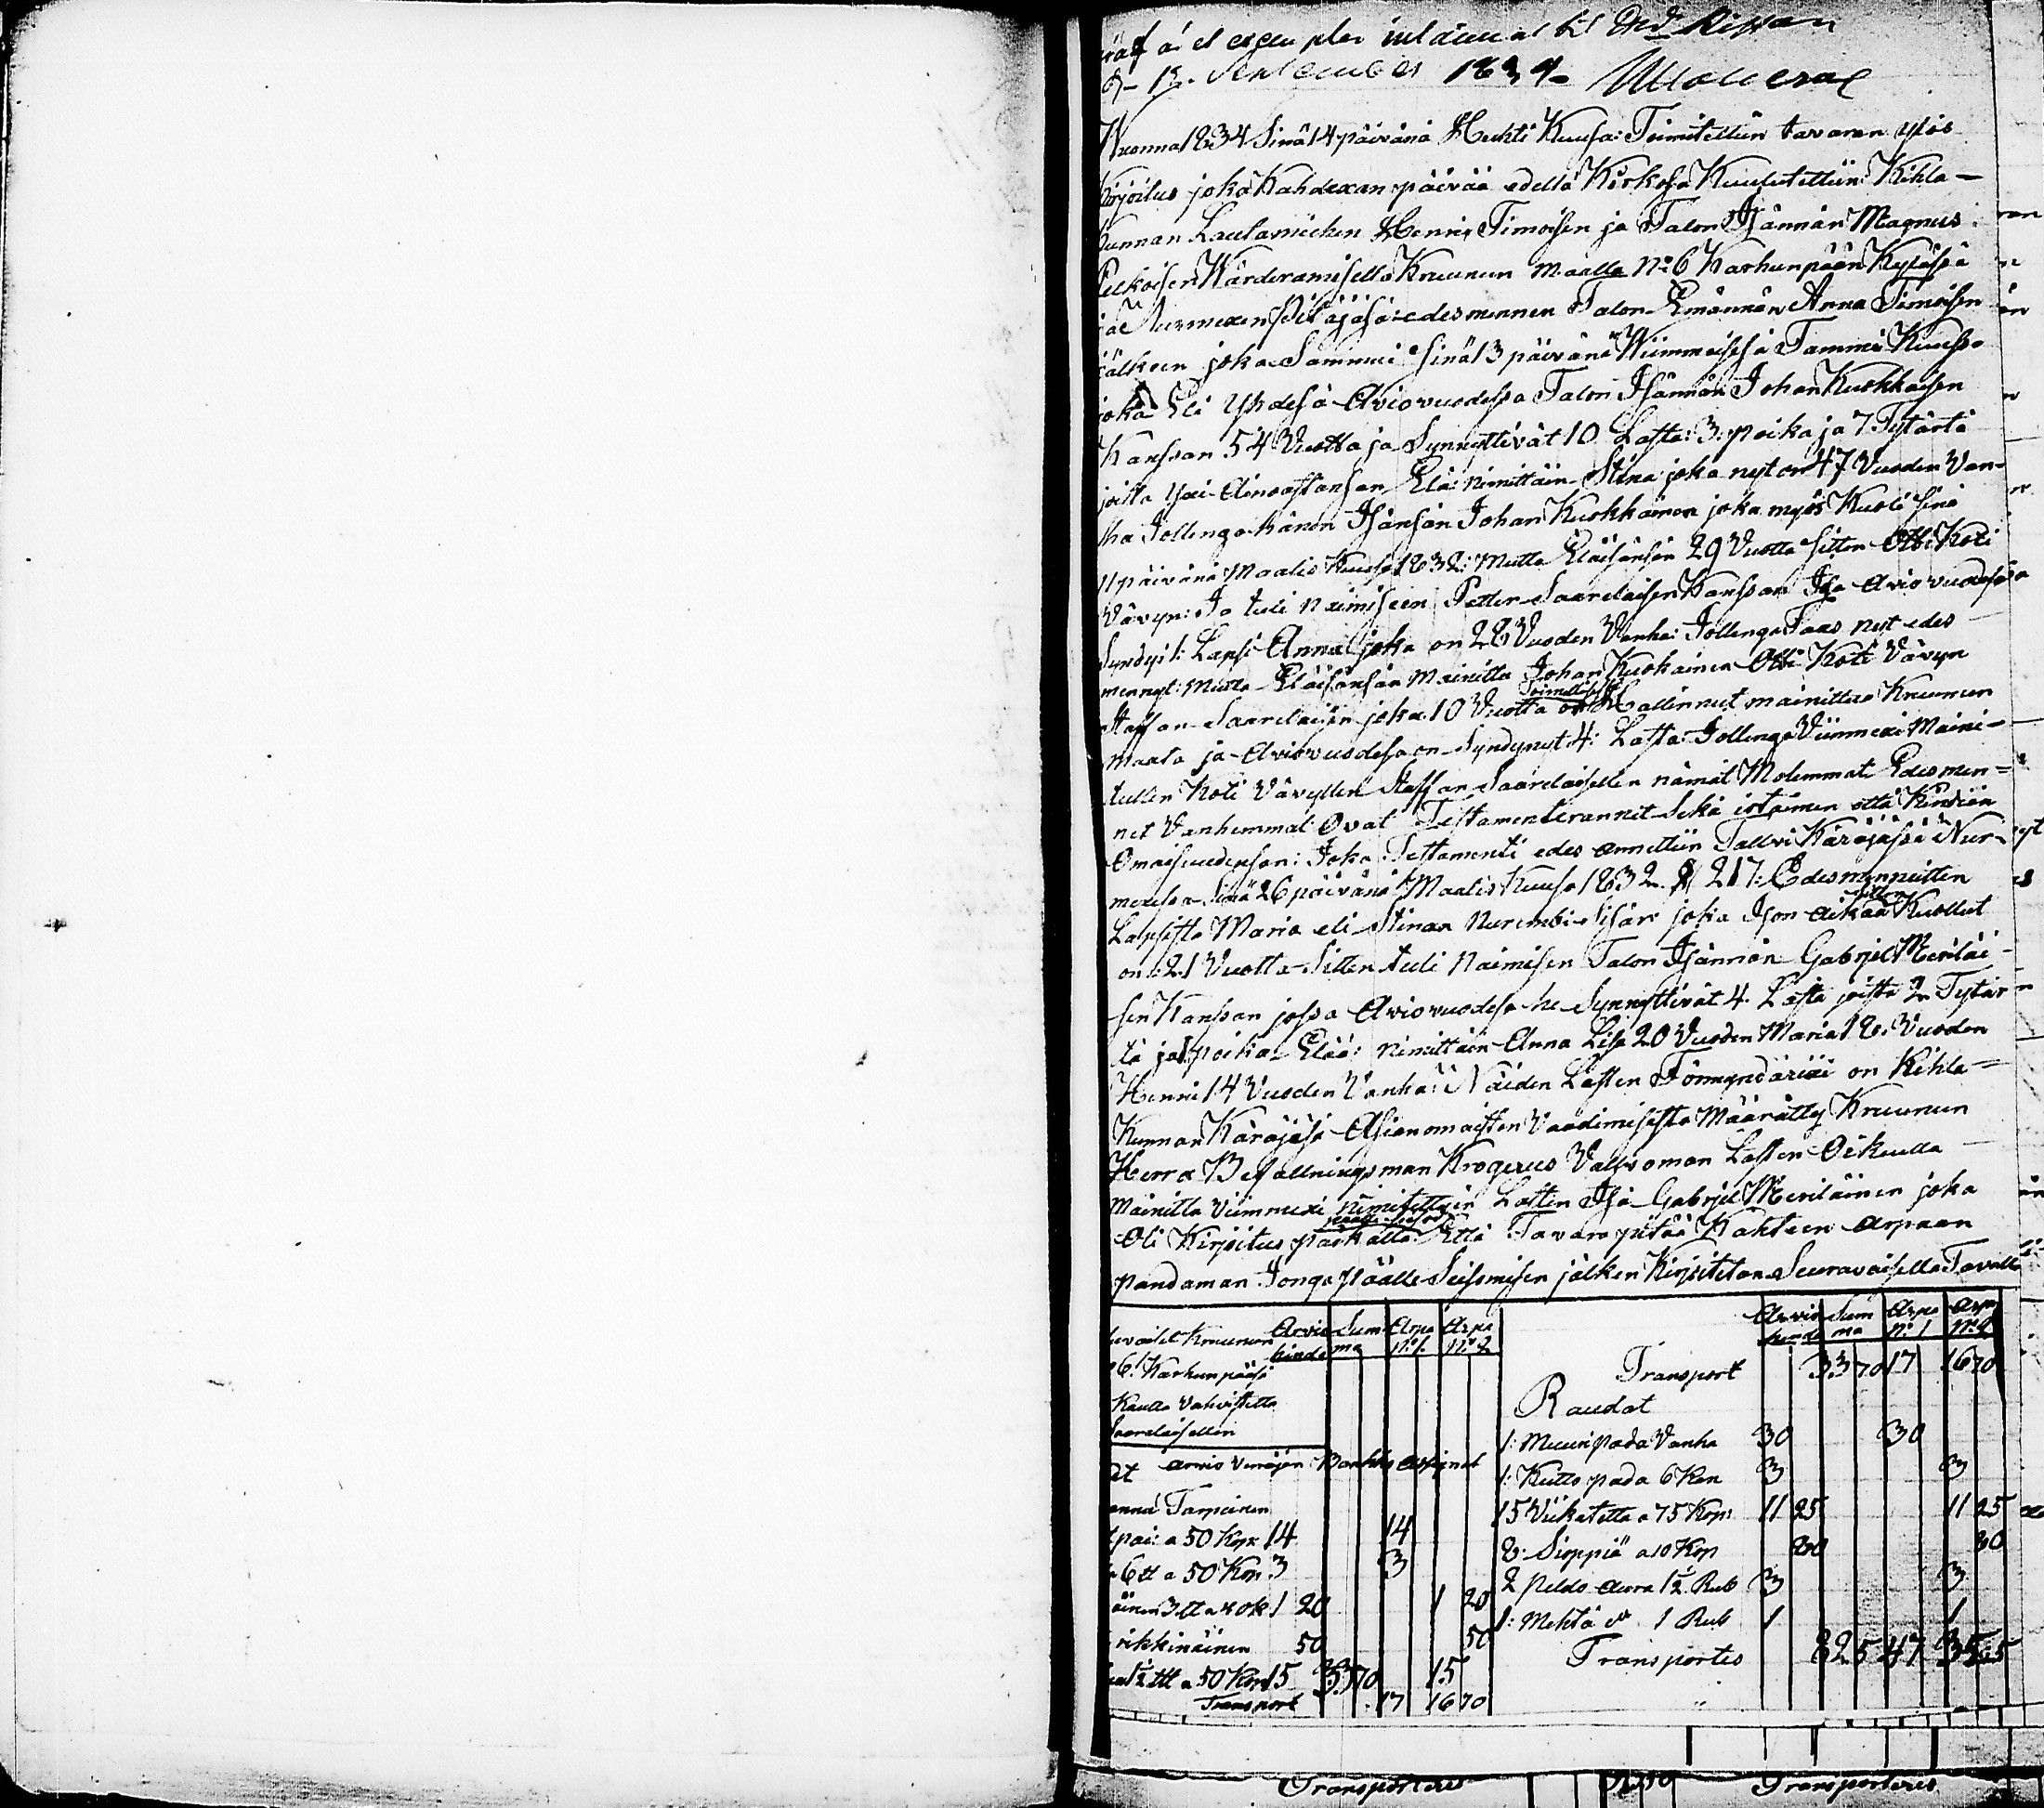 a et exemplar inlämnat
September 1834
Wuonna 1834 Sinä 14 päivänä Huhti Kuusa: Toimitettiin tavaran ylös
kirjoitus joka Kahdexan päivää edellä Kirkosa Kuulutettiin: Kihla-
kunnan Lautamiehen Henrix Timoisen ja Talon Isännän Magnus
Pelkoisen Wärderamisella Kruunun Maalla No 6 Karhunpään Kyläsä
ja Nurmexen Pitäjäsä: edesmennen Talon Emännän Anna Timoisen
jälkeen joka Sammui Sinä 13 päivänä Wiimmeisesä Tammi Kuusa
joka Eli Yhdesä Aviovuodessa Talon Isännän Johan Kuokkaisen
Kanssan 54 Vuotta ja Synnyttivät 10 Lasta: 3: poika ja 7 Tytärtä
joista Yxi Ainoastansan Elä: nimittäin Stina joka nyt on 47 Vuoden Van-
ha Jollenga hänen Isänsän Johan Kuokkainen joka myös Kuoli Sinä
päivänä Maalis Kuusa 1832: Mutta Eläisänsän 29 Vuotta Sitten Otti Koti
Vävyn: Ja tuli Naimiseen Petter Saarelaisen Kanssan Isä Avio vuodessa
Syndyi 1: Lapsi Anna joka on 28 Vuoden Vanha: Jollenga Taas nyt edes
mennyt: Mutta Eläisänsän Mainittu Johan Kuokainen Otti Koti Vävyn
Staffan Saarelaisen joka 10 Vuotta on Hallinnut mainittua Kruunun
maata ja Aviovuodesa on Syndynyt 4: Lasta: Jollenga Viimmexi Maini-
tullen Koti Vävyllen Staffan Saarelaisellen nämät Molemmat Edesmen-
net Vanhemmat Ovat Testamenterannet Sekä irtaimen että Kindiän
Omaisuudensan: Joka Testamenti edes annettiin Talvi Käräjäsä Nur-
mexessa Sinä 26 päivänä Maalis Kuusa 1832 § 217: Edesmenneitten
Lapsista Maria eli Stinan Nurembi Sisär joka Ison aikaa Kuollut
on 21 Vuotta Sitten tuli Naimisen Talon Isännän Gabriel Meriläi-
sen Kanssan jossa Aviovuodesa he Synnyttivät 4. Lasta joista 2 Tytär-
tä ja 1 poika Elää: nimittäin Anna Lisa 20 Vuoden Maria 18: Vuoden
Henni 14 Vuoden Vanha: Näiden Lasten Förmyndärixi on Kihla-
Kunnan Käräjäsä Asianomaisten Vaadimisesta Määrätty Kruunun
Herra Befallningsman Krogerus Valvoman Lasten Oikeutta
Mainitta viimmexi nimitettyin Lasten Isä Gabriel Meriläinen joka
Oli Kirjoitus paikalla Että Tavara pitää Kahteen Arpaan
pandaman Jonga päälle Seisomisen jälken Kirjoitetan Seuravaisella Tavalla
Kruunun Arvio hinda Sum ma Arpa No 1. Arpa No 2
6: Karhunpääsä
Kautta Vahvistettu
Saarelaisellen
Arvio Venäjän Bankos Assignat
Tarpeinen
a 50 Kop: 14 14
6 ℔ a 50 Kop 3 3
3 ℔ a 40 K 1 20 1 20
rikkinäinen 50 50
1/2 ℔ a 50 Kop 15 33 70 15
Transport 17 16 70
Arvio hinda Sum ma Arpa No 1 Arpa No 2
Transport 33 70 17 16 70
Raudat
1: Muuripada Vanha 30 30
1: Keitto pada 6 Kan 3 3
15 Viikatetta a 75 Kop: 11 25 11 25
8: Sirppiä a 10 Kop 80 80
2 Peldo aura 1 1/2 Rub 3 3
1: Mehtä do 1 Rub 1 1
Transportes 82 5 47 35 5
Transporteres Transporteres